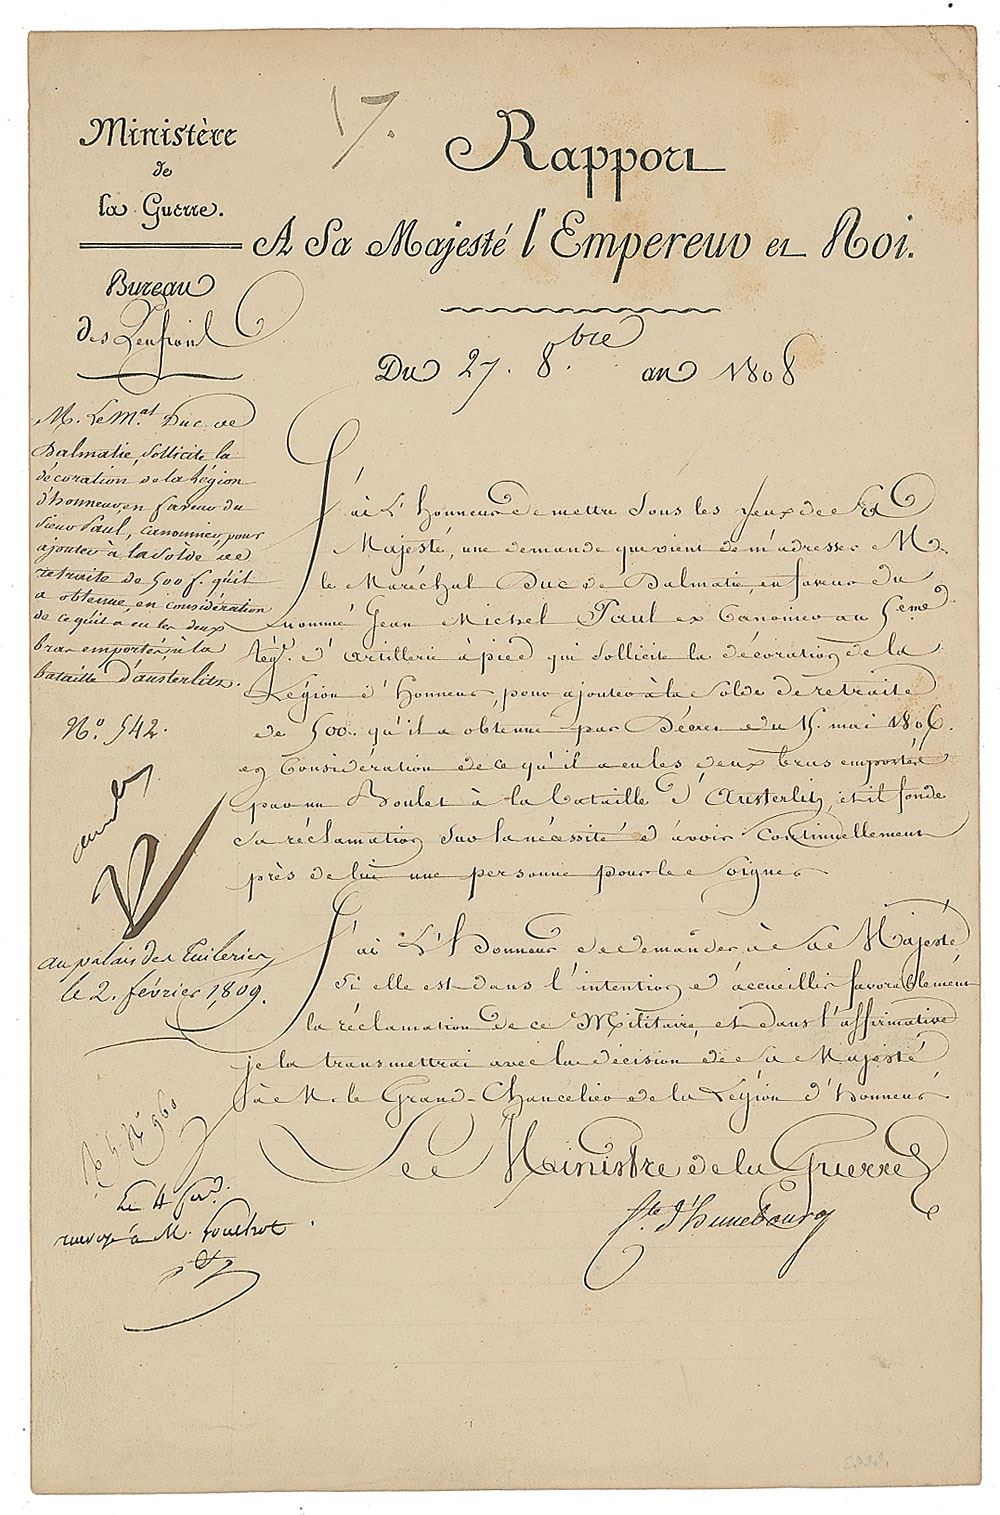 17.
Ministère
de
la Guerre.
Bureau
des
Rapport
A Sa Majesté l'Empereur et Roi.
Du 27. 8.bre an 1808
M. Le M.al Duc de
Dalmatie, sollicite la
décoration de la Légion
d'honneur, en faveur du
Sieur Paul, canonnier, pour
ajouter à la Solde de
retraite de 500 f. qu'il
a obtenue, en considération
de ce qu'il a eu les deux
bras emportés, à la
bataille d'austerlitz.
N.o 542.
J'ai L'honneur de mettre sous les yeux de Sa
Majesté, une demande que vient de m'adresser M.
le Maréchal Duc de Dalmatie, en faveur du
nommé Jean Michel Paul ex Canonier au 5.eme
Rég.t d'artillerie à pied qui sollicite la décoration de la
Légion d'Honneur, pour ajouter à la Solde de retraite
de 500. qu'il a obtenue par Décret du 15. mai 1806.
en Considération de ce qu'il a eu les deux bras emportés
par un Boulet à la bataille d'Austerlitz, et il fonde
sa réclamation sur la nécessité d'avoir Continuellement
près de lui une personne pour le Soigner
J'ai L'honneur de demander à Sa Majesté
si elle est dans l'intention d'accueillir favorablement
la réclamation de ce Militaire, et dans l'affirmative
je la transmettrai avec la décision de Sa Majesté
à M. le Grand-Chancelier de la Légion d'honneur
Le Ministre de la Guerre
C.te d'hunebourg
accordé
au palais des Tuileries
le 2. février 1809.
Le 4
renvoyé à M.